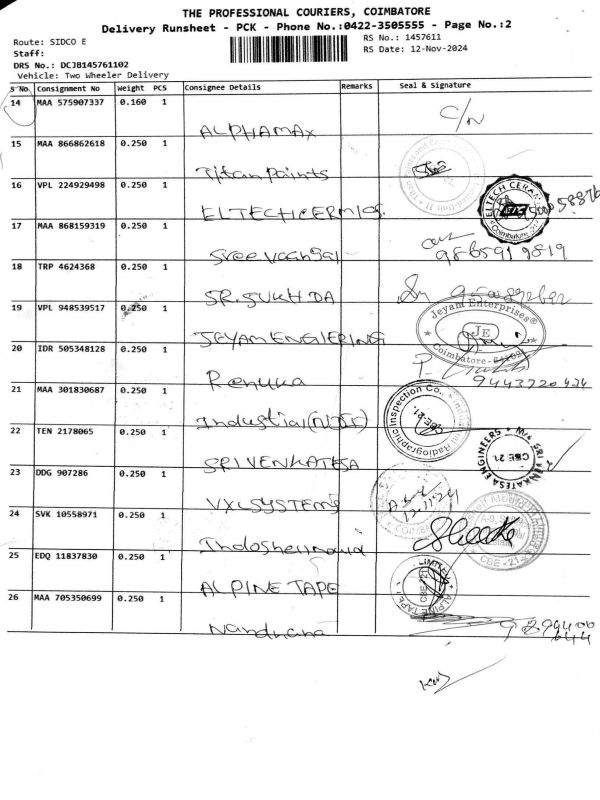 THE PROFESSIONAL COURIERS, COIMBATORE
Delivery Runsheet - PCK - Phone No.:0422-3505555 - Page No.:2
Route: SIDCO E
RS No.: 1457611
Staff:
RS Date: 12-Nov-2024
DRS No.: DCJB145761102
Vehicle: Two Wheeler Delivery
S'No Consignment No Weight PCS Consignee Details Remarks Seal & Signature
14 MAA 575907337 0.160 1
ALPHAMAX C/N
15 MAA 866862618 0.250 1
Titan Paints
16 VPL 224929498 0.250 1
ELTECHCERMICS ELTECH CERAM Coimbatore
17 MAA 868159319 0.250 1
Sree 986591 9819
18 TRP 4624368 0.250 1
SR.SUKHDA
19 VPL 948539517 0.250 1
JEYAM ENGIERING Jeyam Enterprises® JE Coimbatore
20 IDR 505348128 0.250 1
Renuka 9443720424
21 MAA 301830687 0.250 1
Industial (NDT) Industrial Radiographic Inspection Co., CBE-21.
22 TEN 2178065 0.250 1
SRI VENKATESA M/s SRI VENKATESA ENGINEERS CBE 21.
23 DDG 907286 0.250 1
VXL SYSTEMS 12/11/24
24 SVK 10558971 0.250 1
CBE-21
25 EDQ 11837830 0.250 1
ALPINE TAPE ALPINE TAPE LIMITED CBE 21
26 MAA 705350699 0.250 1
Nandhana